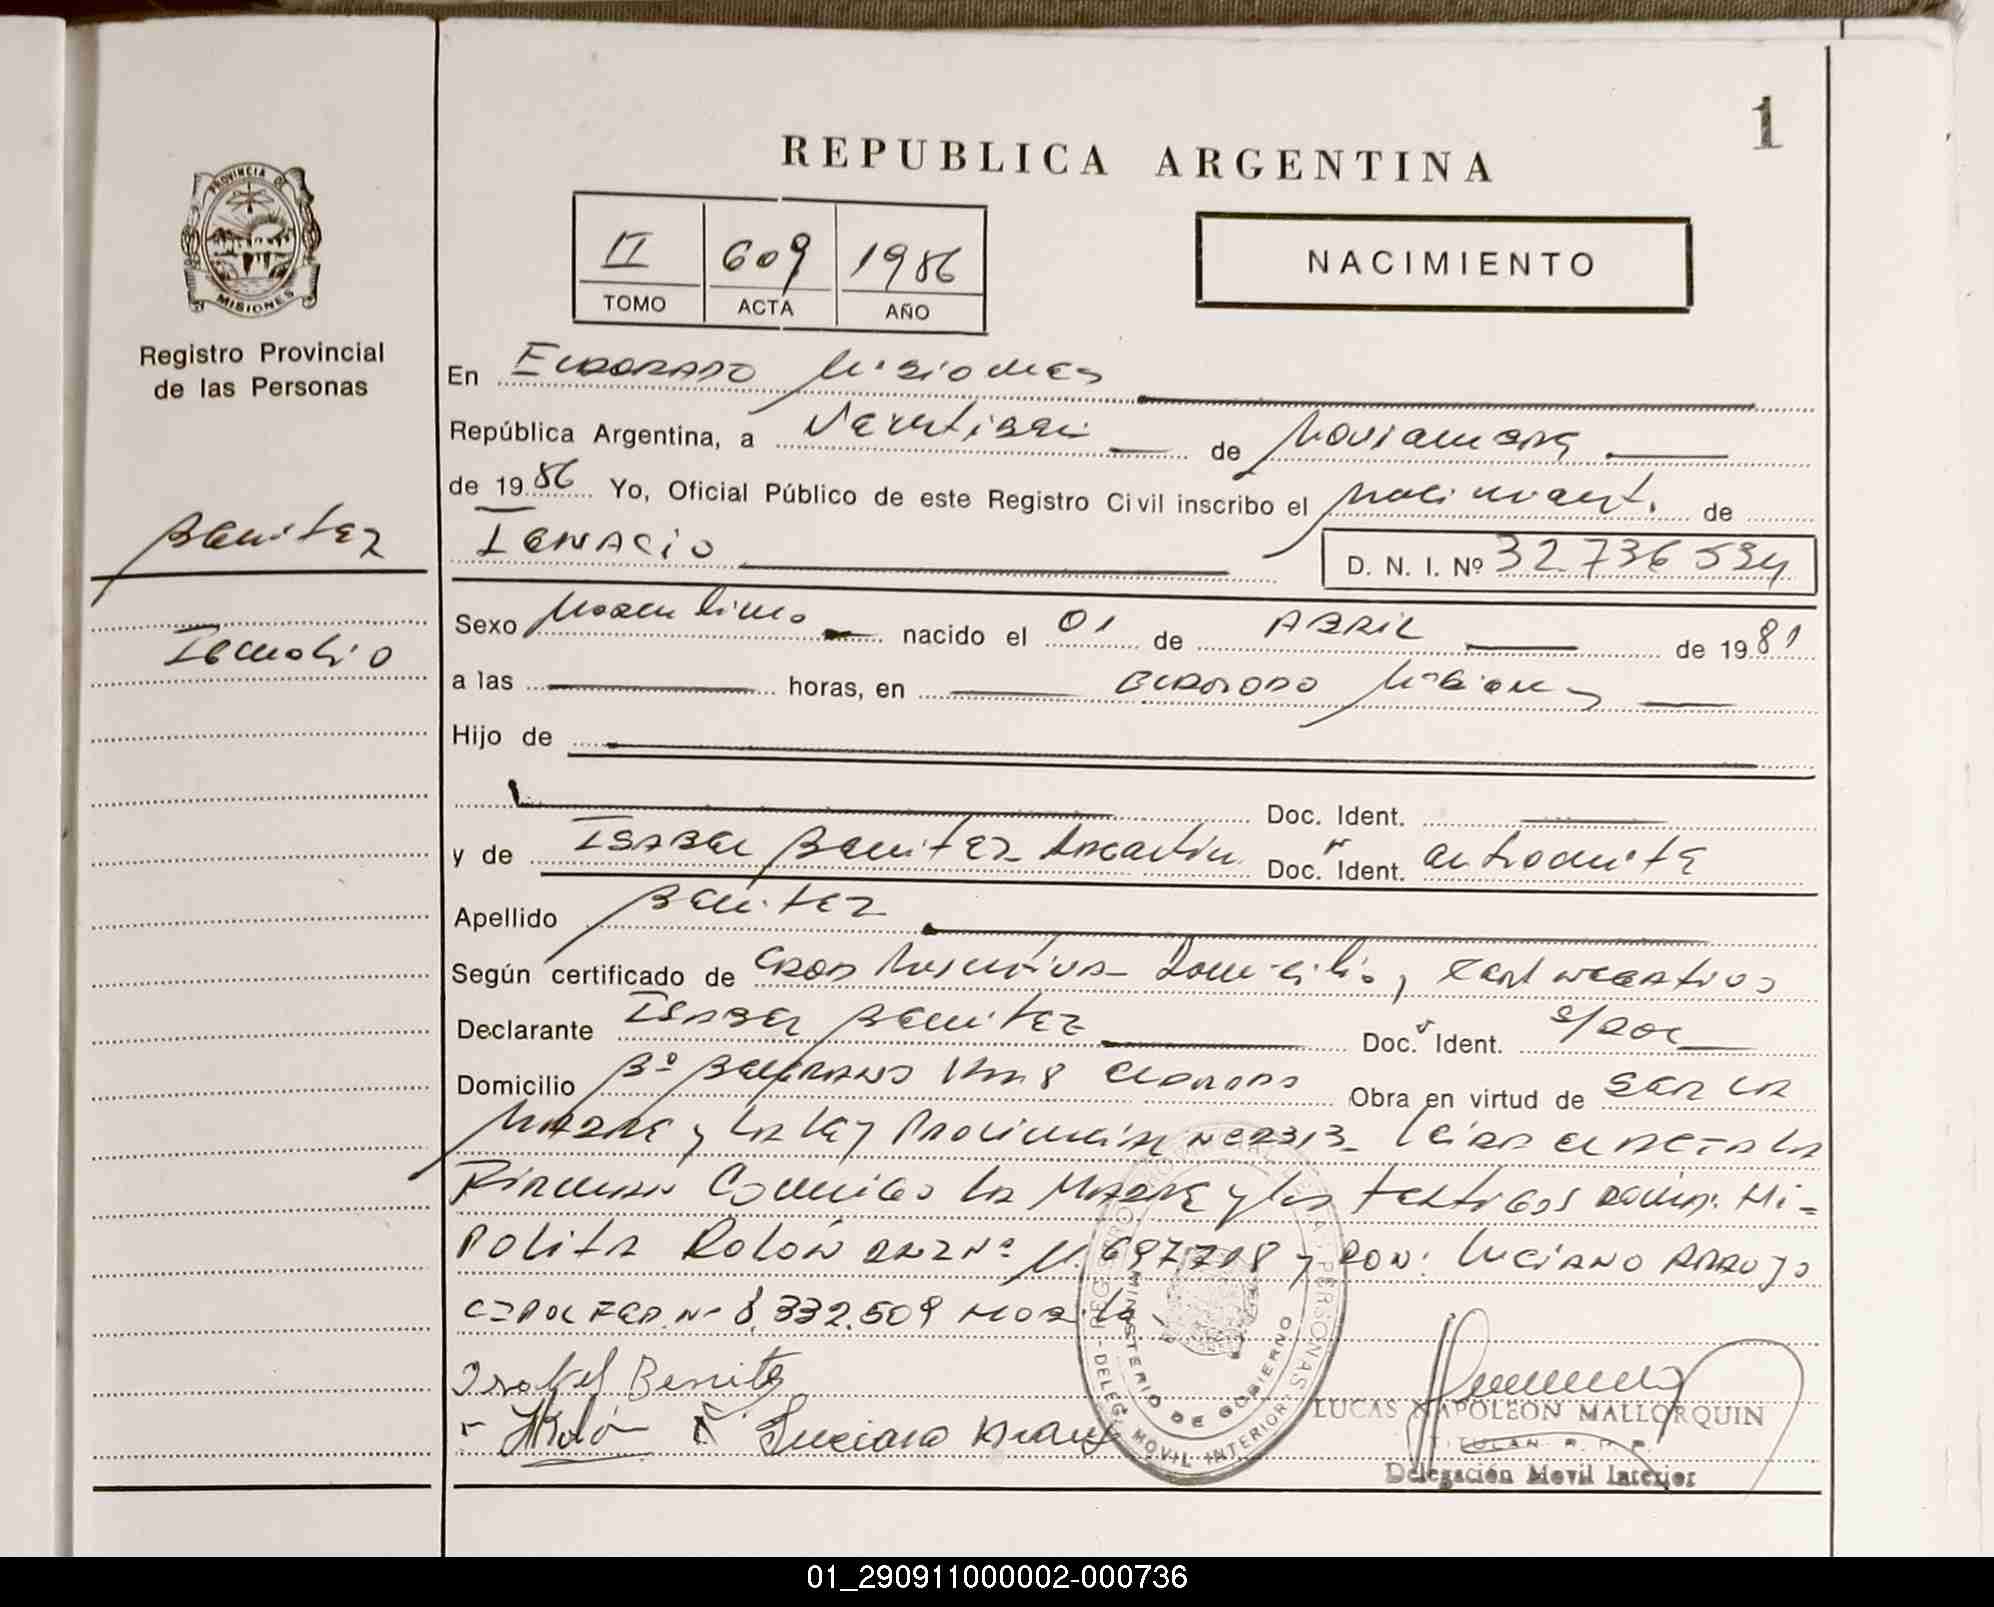 1
REPUBLICA ARGENTINA
II 609 1986
TOMO ACTA AÑO
NACIMIENTO
PROVINCIA DE
MISIONES
Registro Provincial
de las Personas
Benitez
Ignacio
En Eldorado Misiones
República Argentina, a Veintiseis de Noviembre
de 1986 Yo, Oficial Público de este Registro Civil inscribo el Nacimiento de
Ignacio
D. N. I. Nº 32736534
Sexo Masculino nacido el 01 de ABRIL de 1981
a las horas, en Eldorado Misiones
Hijo de
Doc. Ident.
y de Isabel Benitez Argentina Doc. Ident.
Apellido Benitez
Según certificado de Domicilio,
Declarante Isabel Benitez Doc. Ident. s/doc
Domicilio Bº Belgrano Km 8 Eldorado Obra en virtud de ser la
Madre y la Ley Provincial Nº 2313 Leida el acta la
Firman Conmigo la Madre y los testigos doña: Hi-
polita Rolón DNI Nº y don: Luciano Arroyo
CI Pol Fed. Nº 8.332.509
Isabel Benitez
HRolón Luciano
REGISTRO PROVINCIAL DE LAS PERSONAS
MINISTERIO DE GOBIERNO
DELEG. MOVIL INTERIOR
LUCAS NAPOLEON MALLORQUIN
TITULAR R. P. P.
Delegación Movil Interior
01_290911000002-000736